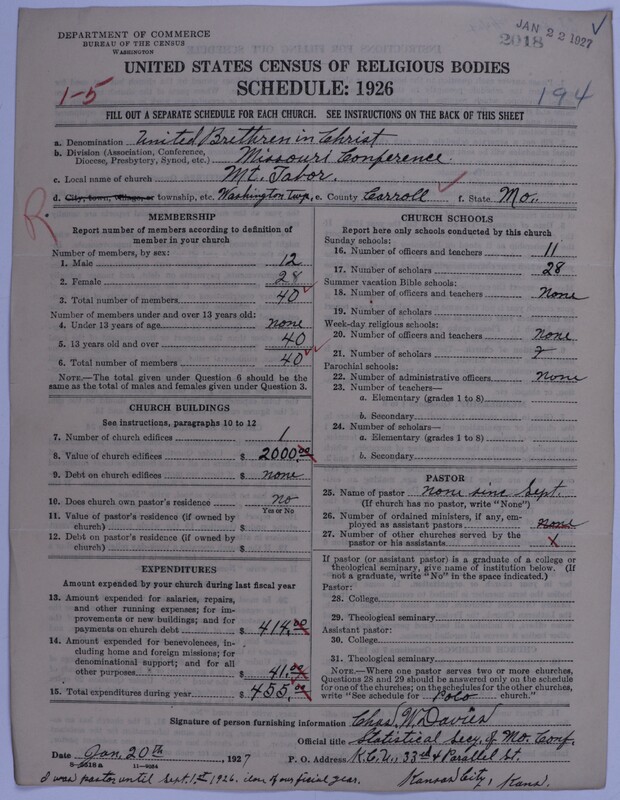 DEPARTMENT OF COMMERCE
BUREAU OF THE CENSUS
WASHINGTON
JAN 22 1927
2018
UNITED STATES CENSUS OF RELIGIOUS BODIES
SCHEDULE: 1926
1-5
194
FILL OUT A SEPARATE SCHEDULE FOR EACH CHURCH. SEE INSTRUCTIONS ON THE BACK OF THIS SHEET
a. Denomination United Brethren in Christ
b. Division (Association, Conference, Diocese, Presbytery, Synod, etc.) Missouri Conference.
c. Local name of church Mt. Tabor.
d. City, town, village, or township, etc. Washington twp, e. County Carroll f. State Mo.
R
MEMBERSHIP
Report number of members according to definition of
member in your church
Number of members, by sex:
1. Male 12
2. Female 28
3. Total number of members 40
Number of members under and over 13 years old:
4. Under 13 years of age none
5. 13 years old and over 40
6. Total number of members 40
NOTE.—The total given under Question 6 should be the
same as the total of males and females given under Question 3.
CHURCH BUILDINGS
See instructions, paragraphs 10 to 12
7. Number of church edifices 1
8. Value of church edifices $ 2000.00
9. Debt on church edifices $ none
10. Does church own pastor's residence No
Yes or No
11. Value of pastor's residence (if owned by
church) $
12. Debt on pastor's residence (if owned by
church) $
EXPENDITURES
Amount expended by your church during last fiscal year
13. Amount expended for salaries, repairs,
and other running expenses; for im-
provements or new buildings; and for
payments on church debt $ 414.00
14. Amount expended for benevolences, in-
cluding home and foreign missions; for
denominational support; and for all
other purposes $ 41.00
15. Total expenditures during year $ 455.00
CHURCH SCHOOLS
Report here only schools conducted by this church
Sunday schools:
16. Number of officers and teachers 11
17. Number of scholars 28
Summer vacation Bible schools:
18. Number of officers and teachers None
19. Number of scholars
Week-day religious schools:
20. Number of officers and teachers None
21. Number of scholars
Parochial schools:
22. Number of administrative officers None
23. Number of teachers—
a. Elementary (grades 1 to 8)
b. Secondary
24. Number of scholars—
a. Elementary (grades 1 to 8)
b. Secondary
PASTOR
25. Name of pastor None sinc Sept.
(If church has no pastor, write "None")
26. Number of ordained ministers, if any, em-
ployed as assistant pastors none
27. Number of other churches served by the
pastor or his assistants x
If pastor (or assistant pastor) is a graduate of a college or
theological seminary, give name of institution below. (If
not a graduate, write "No" in the space indicated.)
Pastor:
28. College
29. Theological seminary
Assistant pastor:
30. College
31. Theological seminary
NOTE.—Where one pastor serves two or more churches,
Questions 28 and 29 should be answered only on the schedule
for one of the churches; on the schedules for the other churches,
write "See schedule for Polo church."
Signature of person furnishing information Chas. W. Davies
Official title Statistical Secy. of Mo. Conf.
Date Jan. 20th 1927 P. O. Address K.C.U., 33rd & Parallel St.
11-9084
Kansas City, Kans.
I was pastor until Sept. 1st 1926. close of our fiscal year.